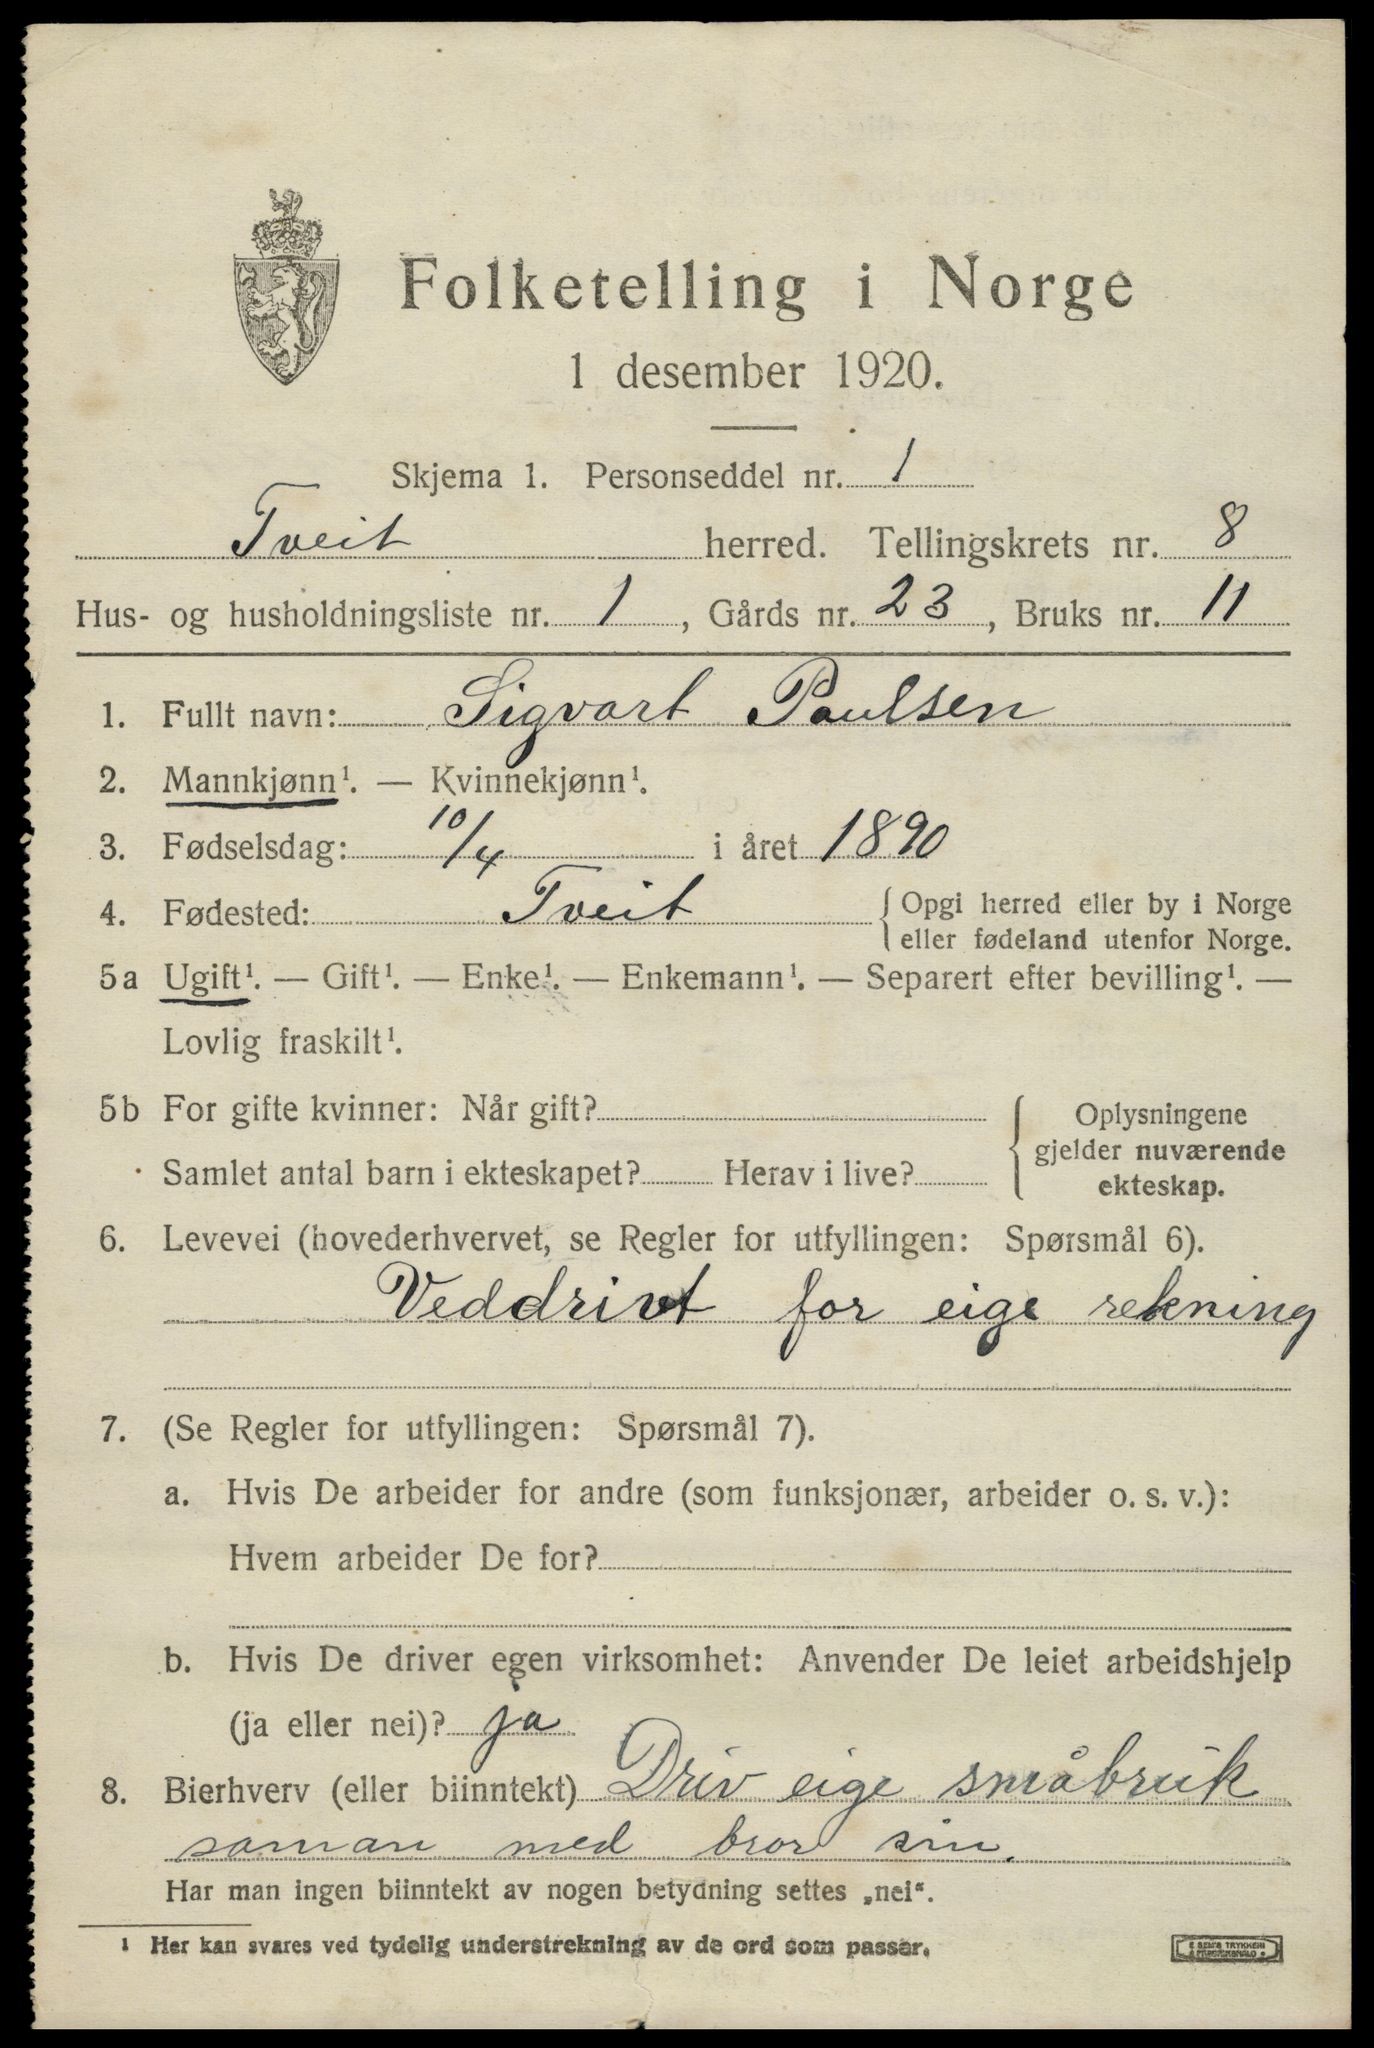 Folketelling i Norge
1 desember 1920.
Skjema 1. Personseddel nr. 1
Tveit herred. Tellingskrets nr. 8
Hus- og husholdningsliste nr. 1, Gårds nr. 23, Bruks nr. 11
1. Fullt navn: Sigvart Paulsen
2. Mannkjønn¹. — Kvinnekjønn¹.
3. Fødselsdag: 10/4 i året 1890
4. Fødested: Tveit { Opgi herred eller by i Norge
eller fødeland utenfor Norge.
5a Ugift¹. — Gift¹. — Enke¹. — Enkemann¹. — Separert efter bevilling¹. —
Lovlig fraskilt¹.
5b For gifte kvinner: Når gift?
Samlet antal barn i ekteskapet? Herav i live?
Oplysningene
gjelder nuværende
ekteskap.
6. Levevei (hovederhvervet, se Regler for utfyllingen: Spørsmål 6).
Veddrivt for eige rekning
7. (Se Regler for utfyllingen: Spørsmål 7).
a. Hvis De arbeider for andre (som funksjonær, arbeider o. s. v.):
Hvem arbeider De for?
b. Hvis De driver egen virksomhet: Anvender De leiet arbeidshjelp
(ja eller nei)? ja
8. Bierhverv (eller biinntekt) Driv eige småbruk
saman med bror sin.
Har man ingen biinntekt av nogen betydning settes „nei“.
¹ Her kan svares ved tydelig understrekning av de ord som passer.